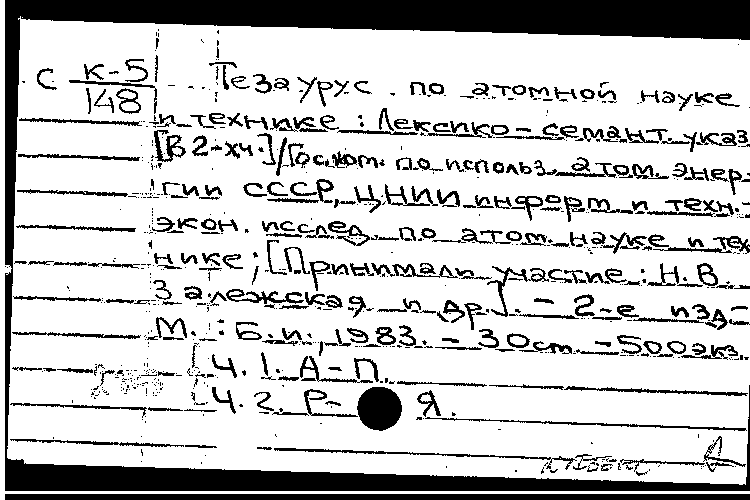 С К-5 Тезаурус по атомной науке
148
и технике : Лексико-семант. указ.
[В 2-х ч.]/Гос. ком. по использ. атом. энер-
гии СССР, ЦНИИ информ и техн.-
экон. исслед. по атом. науке и тех
нике; [Принимали участие : Н. В.
Залежская и др]. - 2-е изд-
М. : Б. и., 1983. - 30 см. - 500 экз.
Ч. 1. А-П.
Ч. 2. Р- Я.